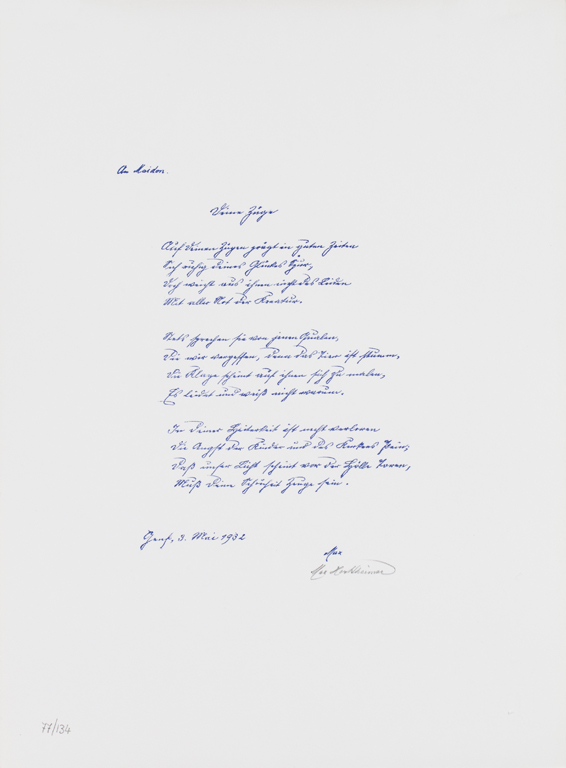 An Maidon.
Deine Züge
Auf deinen Zügen prägt in guten Zeiten
Sich ruhig deines Glückes Spur,
Doch weicht aus ihnen nicht das Leiden
Mit aller Not der Kreatur.
Stets sprechen sie von jenen Qualen,
Die wir vergessen, denn das Tier ist stumm,
Die Klage scheint auf ihnen sich zu malen,
Es leidet und weiß nicht warum.
In deiner Heiterkeit ist nicht verloren
Die Angst der Kinder und des Kerkers Pein,
Daß unser Licht scheint vor der Hölle Toren,
Muß deine Schönheit Zeuge sein.
Genf, 3. Mai 1932
Max
Max Horkheimer
77/134